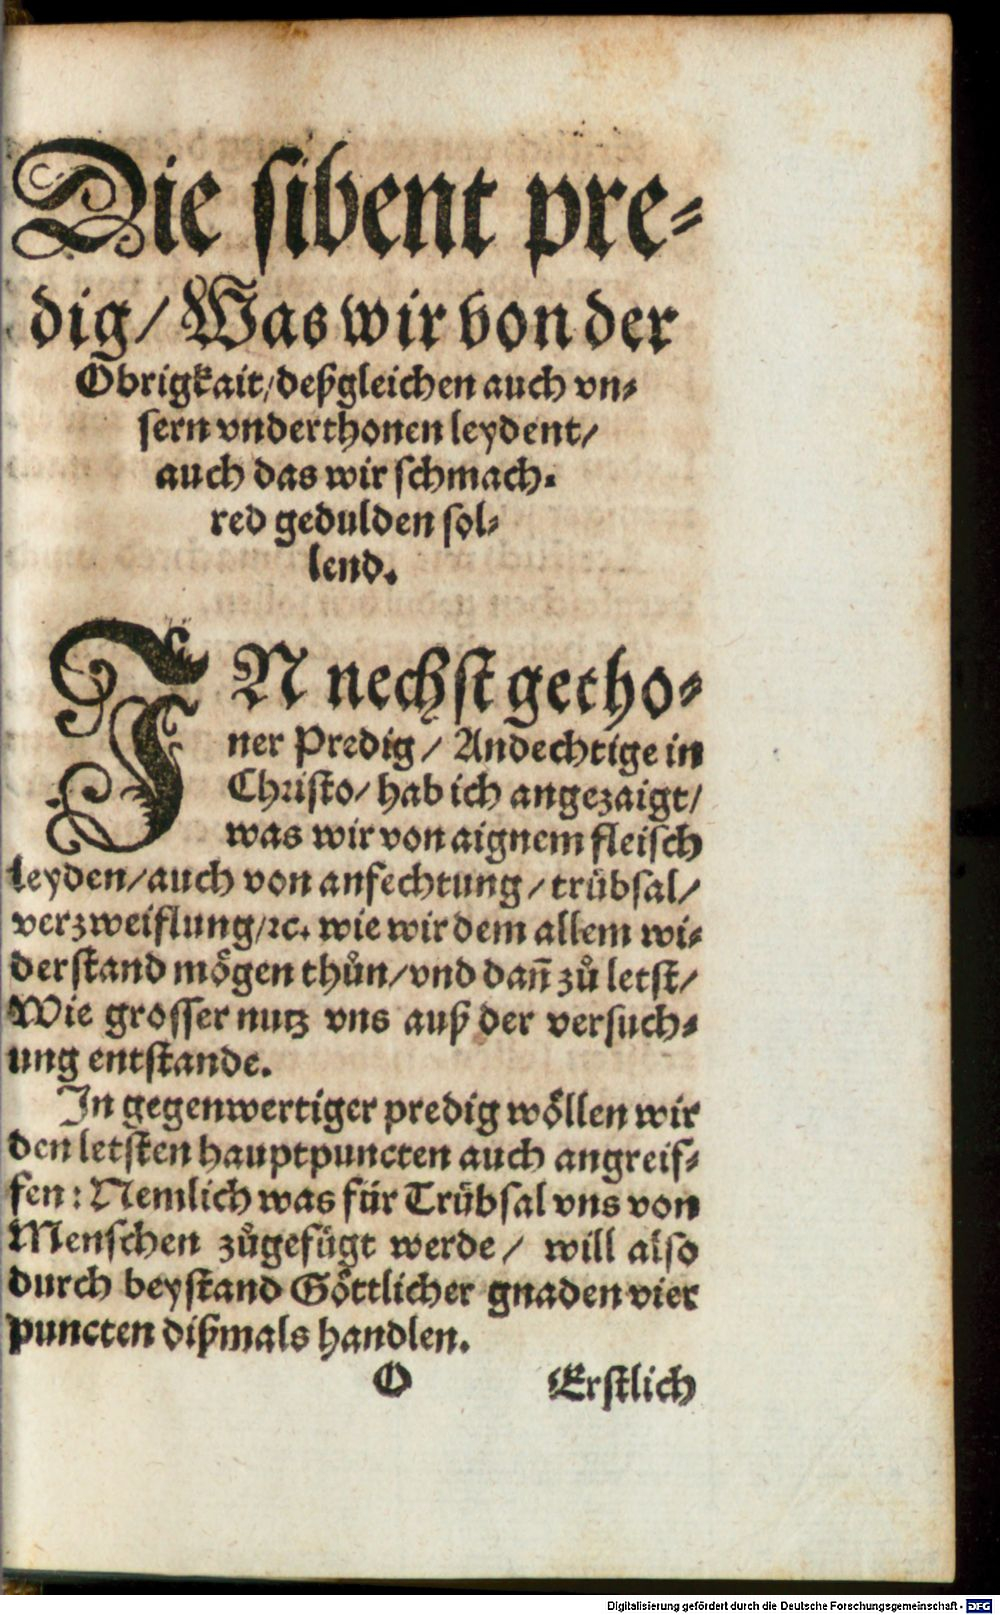 Die sibent pre⸗
dig/ Was wir von der
Obrigkait/ deßgleichen auch vn⸗
sern vnderthonen leydent/
auch das wir schmach⸗
red gedulden sol⸗
lend.
IN nechst getho⸗
ner Predig/ Andechtige in
Christo/ hab ich angezaigt/
was wir von aignem fleisch
leyden/ auch von anfechtung/ trübsal/
verzweiflung/ ꝛc. wie wir dem allem wi⸗
derstand mögen thůn/ vnd dañ zů letst/
Wie grosser nutz vns auß der versuch⸗
ung entstande.
In gegenwertiger predig wöllen wir
den letsten hauptpuncten auch angreif⸗
fen: Nemlich was für Trübsal vns von
Menschen zůgefügt werde/ will also
durch beystand Göttlicher gnaden vier
puncten dißmals handlen.
O Erstlich
Digitalisierung gefördert durch die Deutsche Forschungsgemeinschaft - DFG